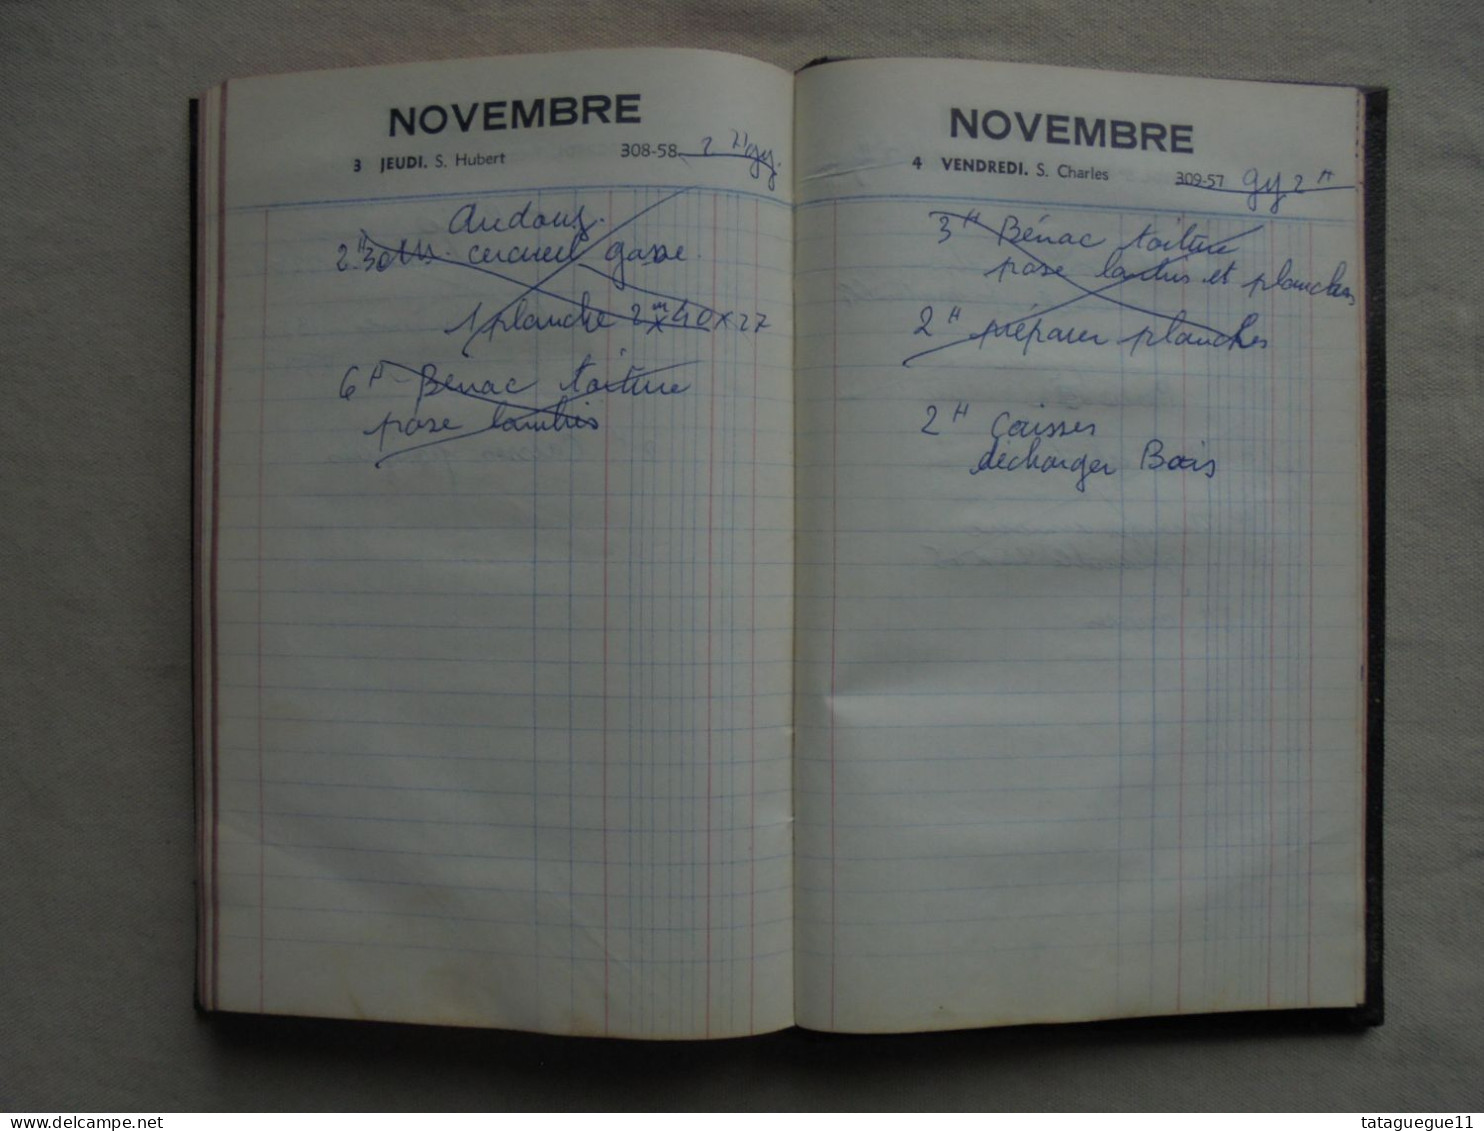 NOVEMBRE
3 JEUDI. S. Hubert 308-58 2 H gy.
Audouy.
2 H 30 cercueil gasse
1 planche 2m40 x 27
6 H Bénac toiture
pose lambris
NOVEMBRE
4 VENDREDI. S. Charles 309-57 gy 2 H
3 H Bénac toiture
pose lambris et planches
2 H préparer planches
2 H caisses
décharger Bois
delcampe.net
tataguegue11